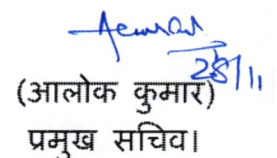 28/11
(आलोक कुमार)
प्रमुख सचिव।